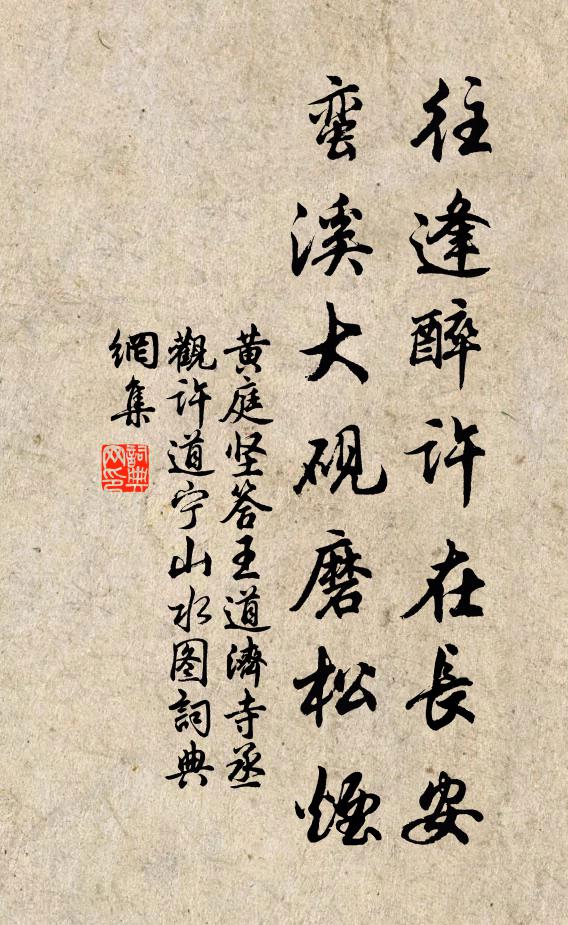 往逢醉许在長安
蛮溪大砚磨松煙
黄庭坚答王道濟寺丞
觀许道宁山水图詞典
網集
詞典
网印